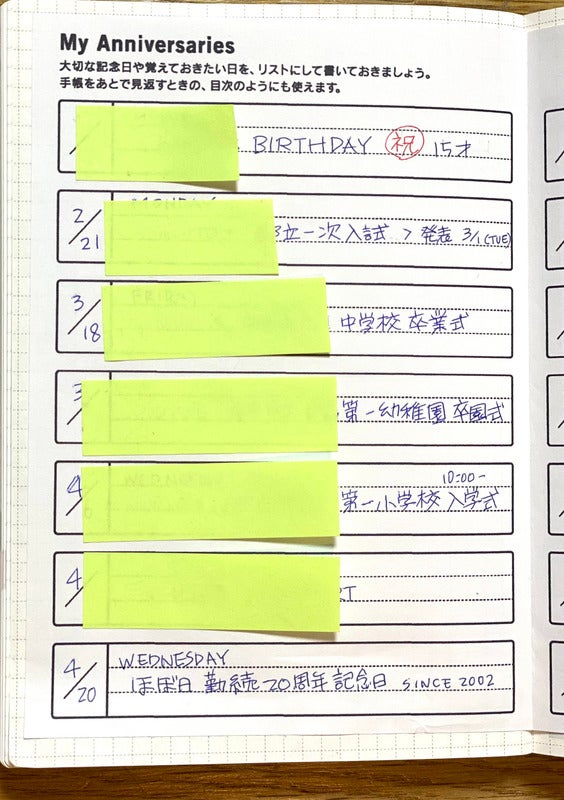 My Anniversaries
大切な記念日や覚えておきたい日を、リストにして書いておきましょう。
手帳をあとで見返すときの、目次のようにも使えます。
BIRTHDAY 祝 15才
2/21
立一次入試 > 発表 3/1(TUE)
3/18 FRIDAY
中学校 卒業式
3/
第一幼稚園 卒園式
4/6 10:00-
第一小学校 入学式
4/
4/20 WEDNESDAY
ほぼ日 勤続20周年記念日 SINCE 2002